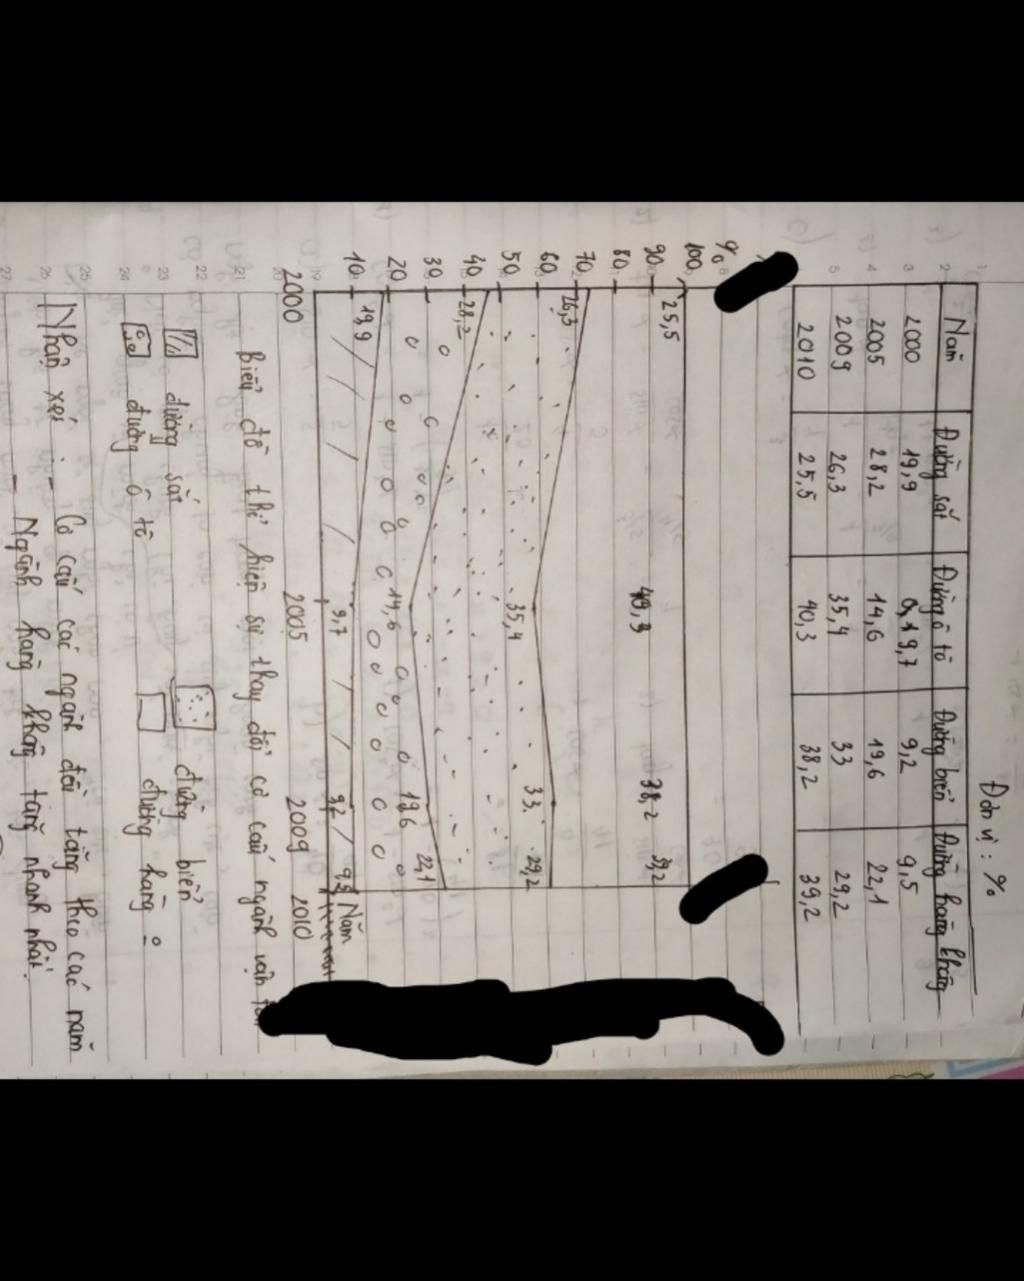 Đơn vị : %
Năm Đường sắt Đường ô tô Đường biển Đường hàng không
2000 19,9 9,7 9,2 9,5
2005 28,2 14,6 19,6 22,1
2009 26,3 35,4 33 29,2
2010 25,5 40,3 38,2 39,2
%
100
90
80
70
60
50
40
30
20
10
25,5 40,3 38,2 39,2
26,3 35,4 33 29,2
28,2 14,6 19,6 22,1
19,9 9,7 9,2 9,5
Năm
2000 2005 2009 2010
Biểu đồ thể hiện sự thay đổi cơ cấu ngành vận tải
đường sắt đường biển
đường ô tô đường hàng 0
Nhận xét : - Cơ cấu các ngành đều tăng theo các năm
- Ngành hàng không tăng nhanh nhất.